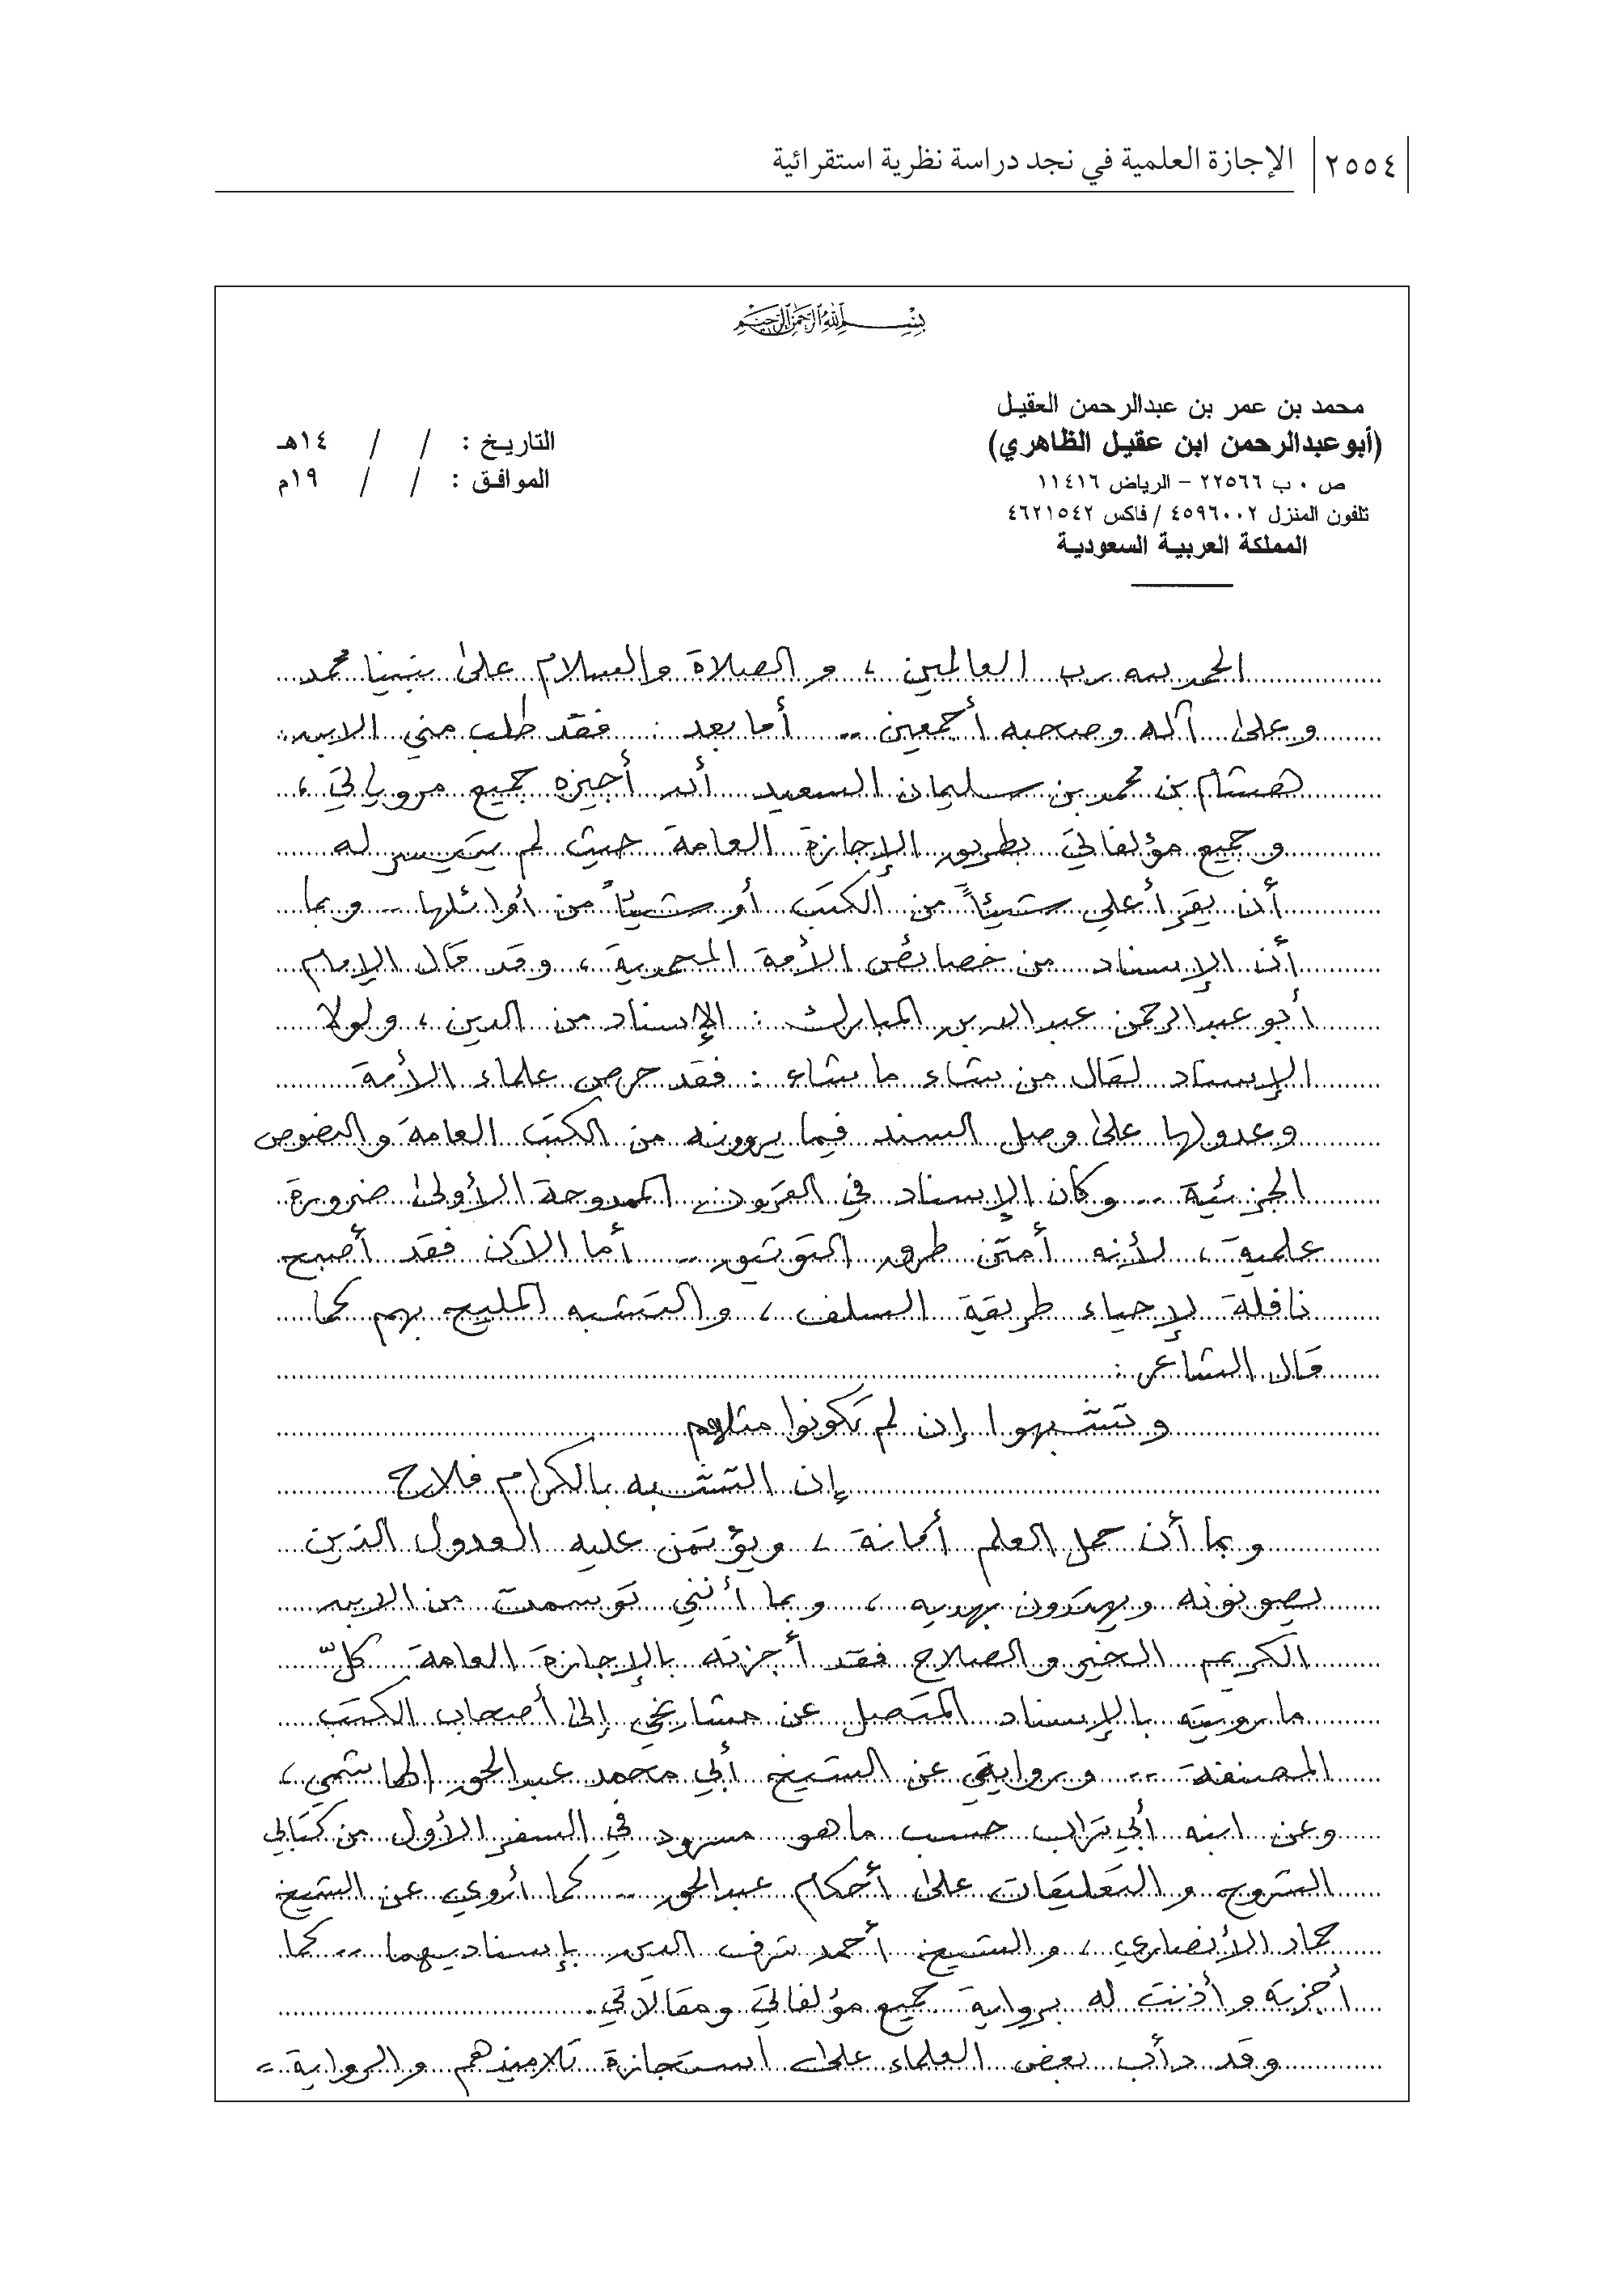 ٢٥٥٤ الإجازة العلمية في نجد دراسة نظرية استقرائية
بسم الله الرحمن الرحيم
محمد بن عمر بن عبدالرحمن العقيل
(أبو عبدالرحمن ابن عقيل الظاهري)
ص ٠ ب ٢٢٥٦٦ – الرياض ١١٤١٦
تلفون المنزل ٤٥٩٦٠٠٢ / فاكس ٤٦٢١٥٤٢
المملكة العربية السعودية
التاريخ : / / ١٤هـ
الموافق : / / ١٩م
الحمد لله رب العالمين ، و الصلاة والسلام على نبينا محمد
وعلى آله وصحبه أجمعين .. أما بعد : فقد طلب مني الابن
هشام بن محمد بن سليمان السعيد أن أجيزه جميع مروياتي ،
وجميع مؤلفاتي بطريق الإجازة العامة حيث لم يتيسر له
أن يقرأ علي شيئاً من الكتب أو شيئاً من أوائلها .. وبما
أن الإسناد من خصائص الأمة المحمدية ، وقد قال الإمام
أبو عبدالرحمن عبدالله بن المبارك : الإسناد من الدين ، ولولا
الإسناد لقال من شاء ما شاء : فقد حرص علماء الأمة
وعدولها على وصل السند فيما يروونه من الكتب العامة والنصوص
الجزئية .. وكان الإسناد في القرون الممدوحة الأولى ضرورة
علمية ، لأنه أمتن طرق التوثيق .. أما الآن فقد أصبح
نافلة لإحياء طريقة السلف ، والتشبه المليح بهم كما
قال الشاعر :
وتشبهوا إن لم تكونوا مثلهم
إن التشبه بالكرام فلاح
وبما أن حمل العلم أمانة ، ويؤتمن عليه العدول الذين
يصونونه ويهتدون بهديه ، وبما أنني توسمت من الابن
الكريم الخير والصلاح فقد أجزته بالإجازة العامة كلّ
ما رويته بالإسناد المتصل عن مشايخي إلى أصحاب الكتب
المصنفة .. وبروايتي عن الشيخ أبي محمد عبدالحق الهاشمي ،
وعن ابنه أبي تراب حسب ما هو مسرود في السفر الأول من كتابي
الشروح والتعليقات على أحكام عبدالحق .. كما أروي عن الشيخ
حماد الأنصاري ، والشيخ أحمد شرف الدين بإسناديهما .. كما
أجزته وأذنت له برواية جميع مؤلفاتي ومقالاتي.
وقد دأب بعض العلماء على استجازة تلاميذهم والرواية =